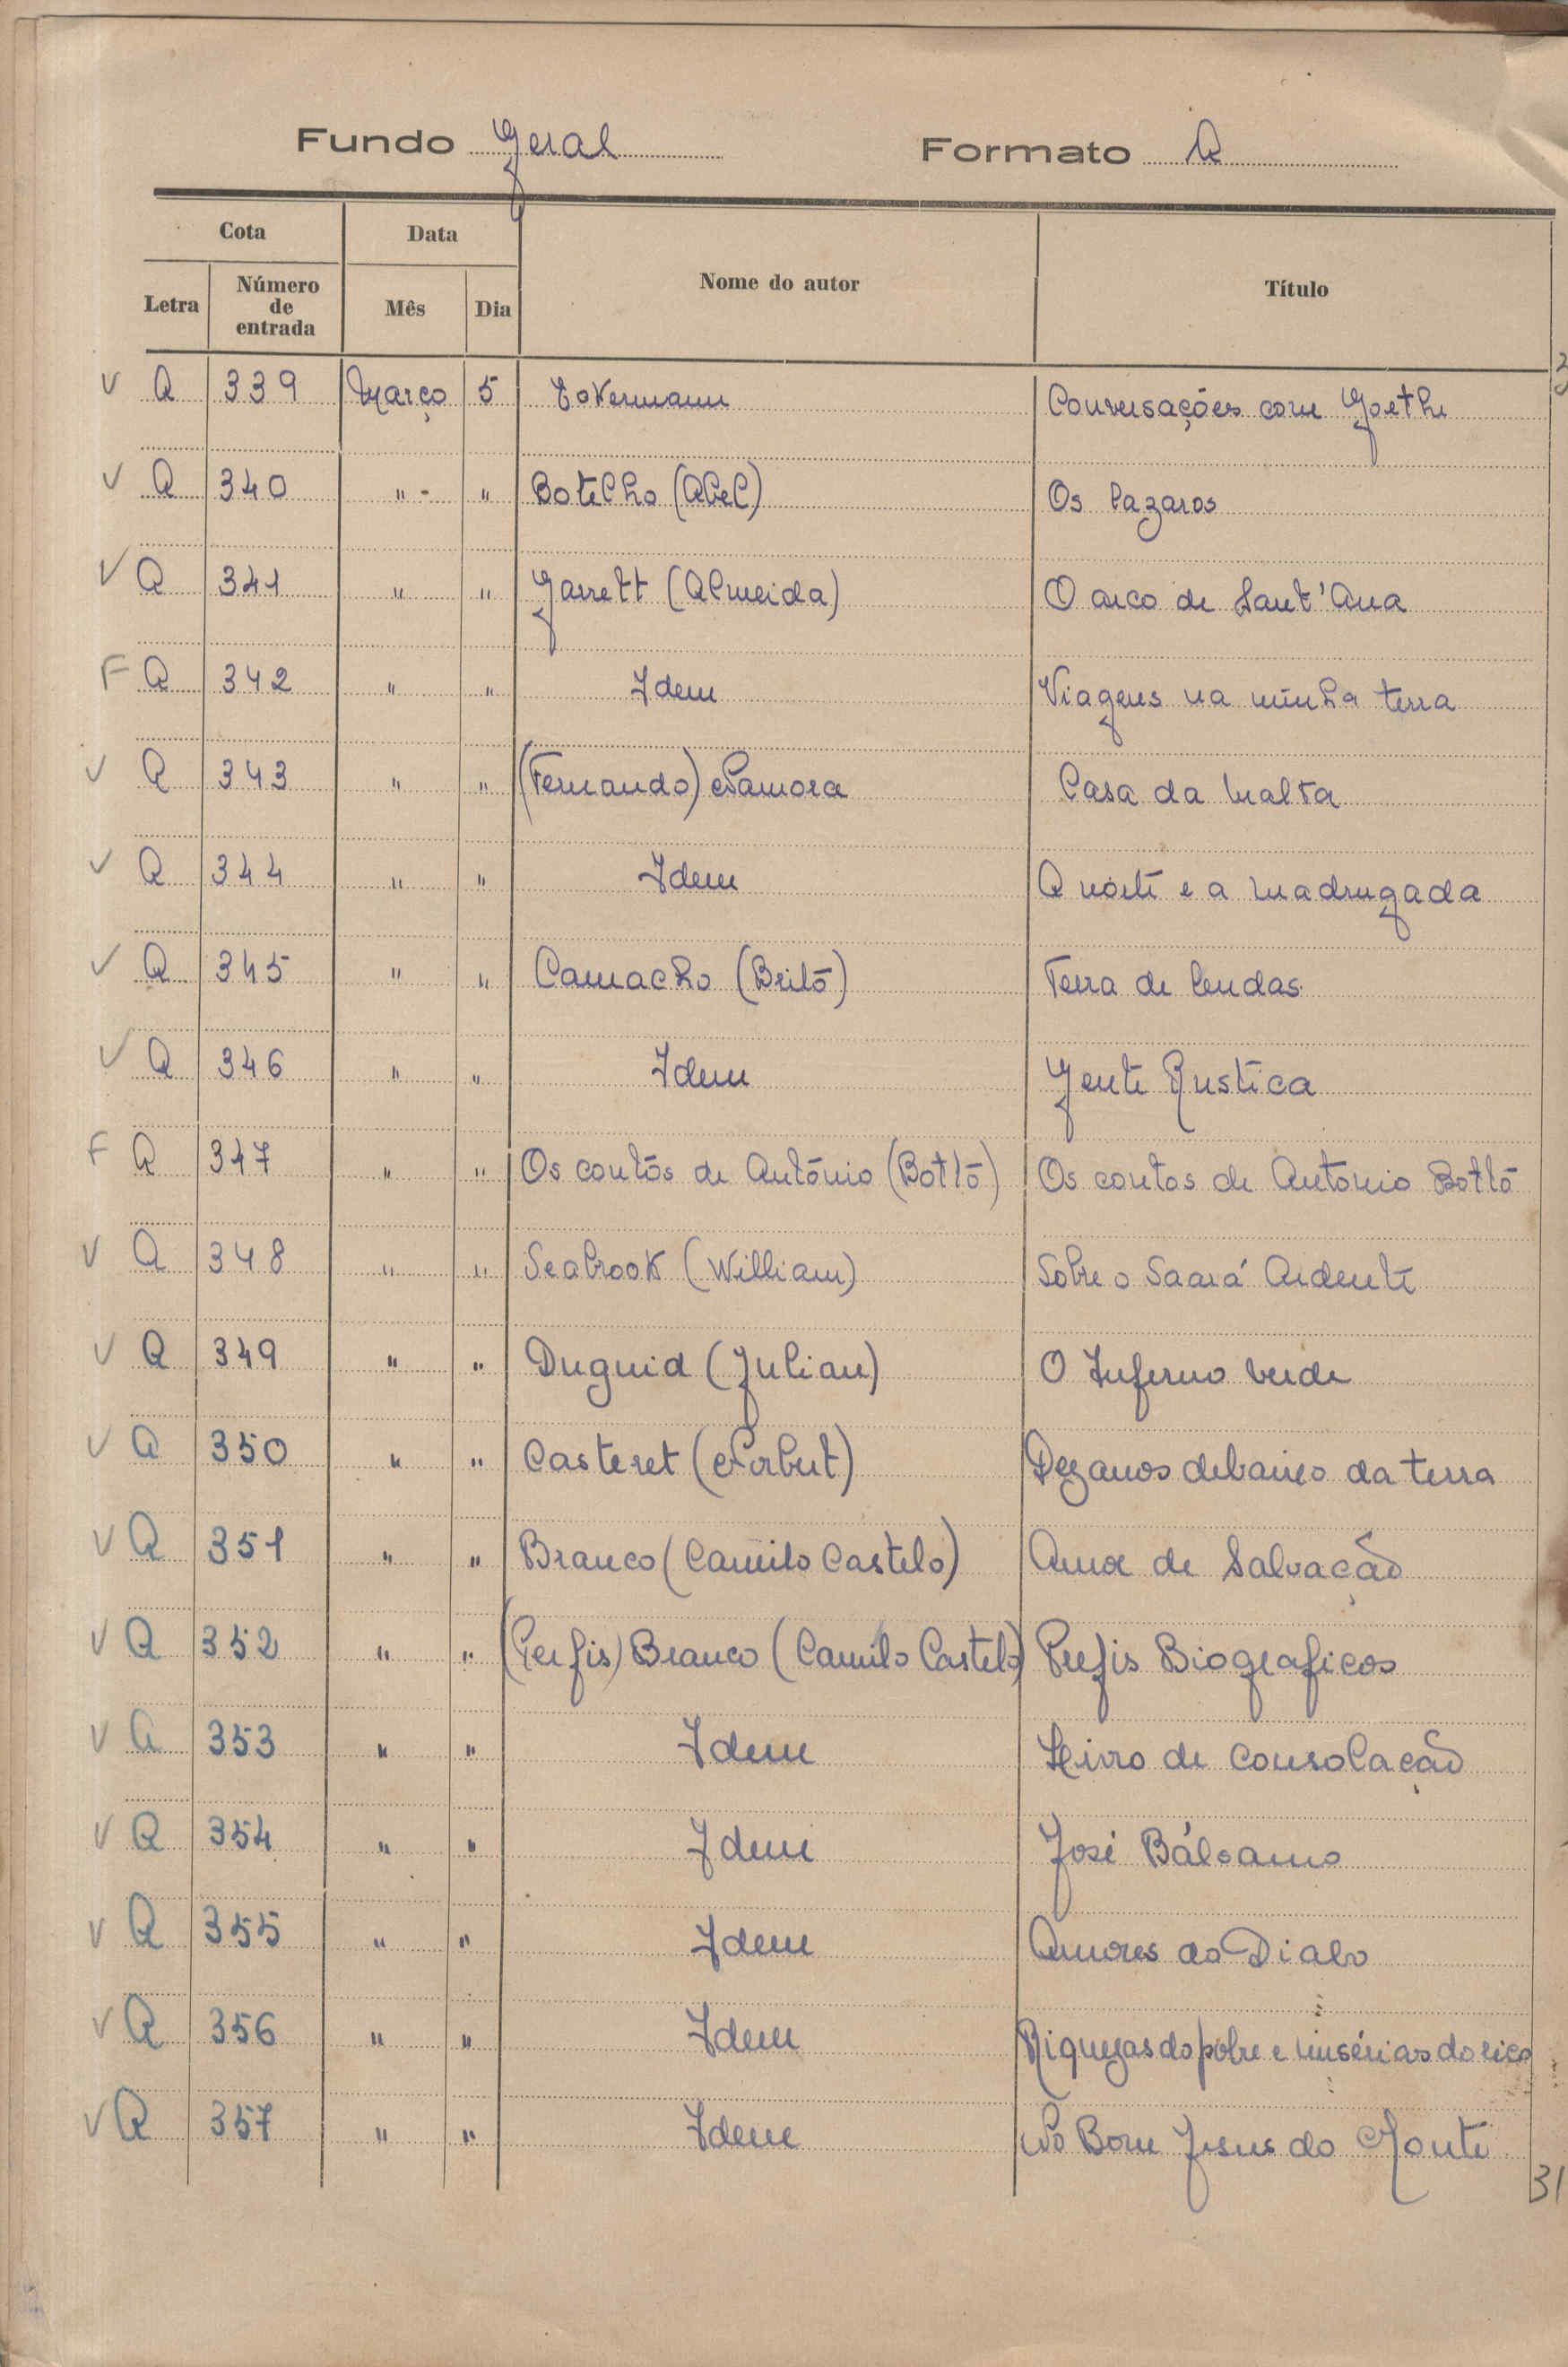 Fundo Geral Formato A
Cota Data Nome do autor Título
Letra Número de entrada Mês Dia
V A 339 Março 5 Eckermann Conversações com Goethe
V A 340 " - " Botelho (Abel) Os lazaros
V A 341 " " Garrett (Almeida) O arco de Sant'Ana
F A 342 " " Idem Viagens na minha terra
V A 343 " " (Fernando) Namora Casa da Malta
V A 344 " " Idem A noite e a Madrugada
V A 345 " " Camacho (Brito) Terra de lendas
V A 346 " " Idem Gente Rustica
F A 347 " " Os contos de António (Botto) Os contos de Antonio Botto
V A 348 " " Seabrook (William) Sobre o Saará Ardente
V A 349 " " Duguid (Julian) O Inferno Verde
V A 350 " " Casteret (Norbert) Dez anos debaixo da terra
V A 351 " " Branco (Camilo Castelo) Amor de Salvação
V A 352 " " (Perfis) Branco (Camilo Castelo) Perfis Biograficos
V A 353 " " Idem Livro de Consolação
V A 354 " " Idem José Bálsamo
V A 355 " " Idem Amores do Diabo
V A 356 " " Idem Riquezas do pobre e misérias do rico
V A 357 " " Idem No Bom Jesus do Monte
31